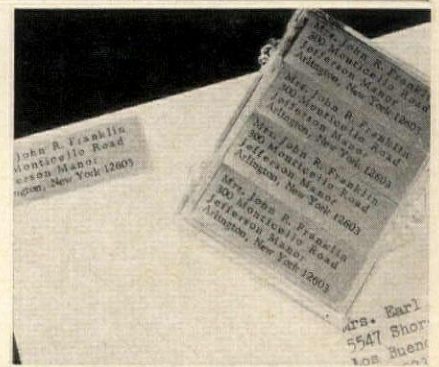 John R. Franklin
Monticello Road
erson Manor
ngton, New York 12603
Mrs. John R. Frankli
300 Monticello Road
Jefferson Manor
Arlington, New York 12603
Mrs. John R. Franklin
300 Monticello Road
Jefferson Manor
Arlington, New York 12603
Mrs. John R. Franklin
300 Monticello Road
Jefferson Manor
Arlington, New York 12603
Mrs. John R. Franklin
300 Monticello Road
Jefferson Manor
Arlington, New York 12603
Mrs. Earl
5547 Shor
Los Buen